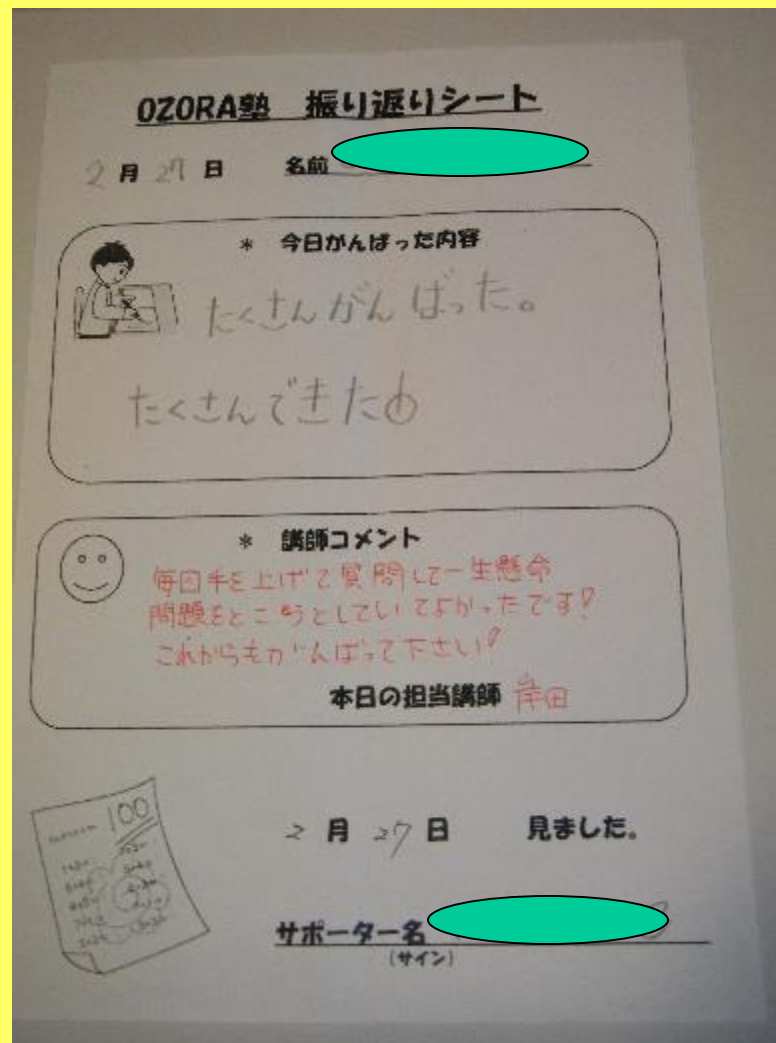 OZORA塾 振り返りシート
2月27日 名前
* 今日がんばった内容
たくさんがんばった。
たくさんできた
* 講師コメント
毎回手を上げて質問して一生懸命
問題をとこうとしていてよかったです!
これからもがんばって下さい!
本日の担当講師 岸田
100
2月27日 見ました。
サポーター名
(サイン)